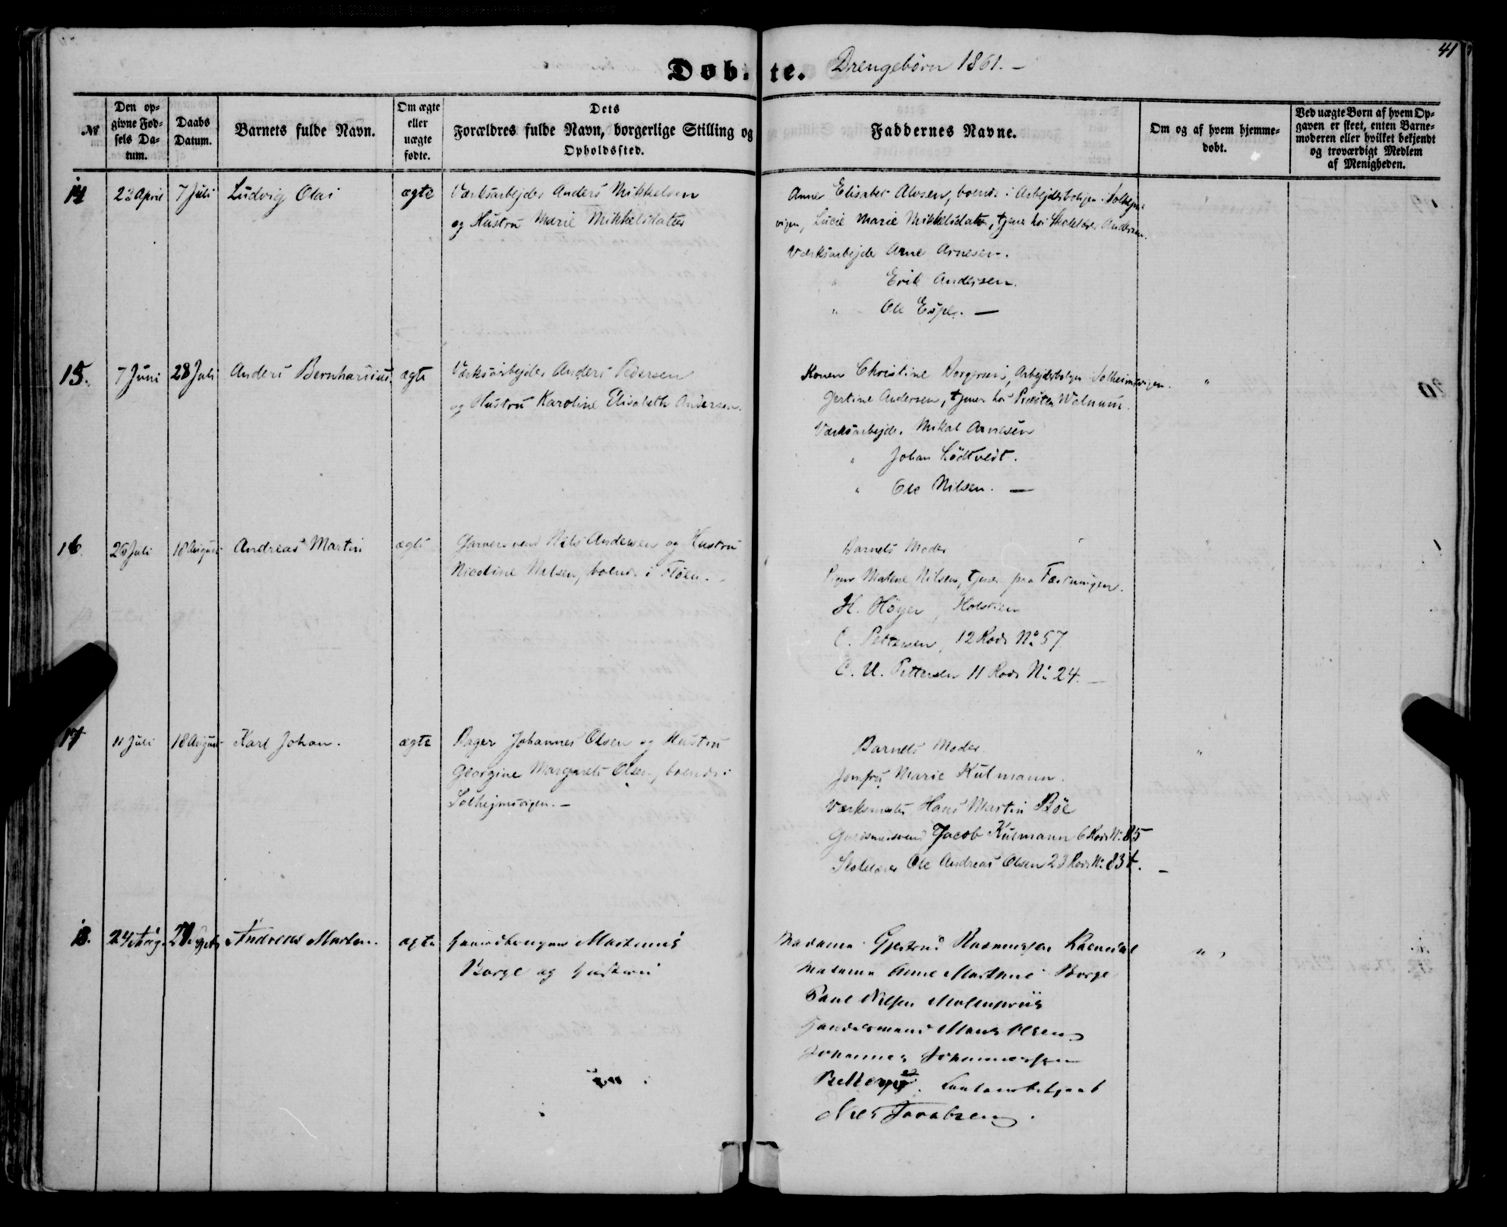 41
Døbte. Drengebørn 1861. –
№
Den opgivne Fødsels Datum.
Daabs Datum.
Barnets fulde Navn.
Om ægte eller uægte fødte.
Dets Forældres fulde Navn, borgerlige Stilling og Opholdssted.
Faddernes Navne.
Om og af hvem hjemmedøbt.
Ved uægte Børn af hvem Opgaven er skeet, enten Barnemoderen eller hvilket bekjendt og troværdigt Medlem af Menigheden.
14 23 April 7 Juli Ludvig Olai ægte Værksarbejder Anders Mikkelsen
og Hustru Marie Mikkelsdatter
Anne Elisabet Alvsen, boende i Arbejderboligen Solhejms-
vigen, Lucie Marie Mikkelsdatter, tjener hos Skoleholder Andersen.
Værksarbejder Arne Arnesen.
" Erik Andersen.
" Ole Espe. —
15. 7 Juni 28 Juli Anders Bernhardus ægte Værksarbejder Anders Pedersen
og Hustru Karoline Elisabeth Andersen.
Konen Christine Torgersen, Arbejderboligen Solheimsvigen. "
Gjertine Andersen, tjener hos Præsten Walnum.
Værksarbejder Mikal Arnesen
" Johan Lødtvedt.
" Ole Nilsen. —
16. 25 Juli 18 August Andreas Martin ægte Garversvend Nils Andersen og Hustru
Nicoline Nilsen, boende i Fløen.
Barnets Moder
Pigen Malene Nilsen, tjener paa Fæstningen.
H. Høyer, Holsteen
C. Pettersen, 12 Rode № 57
C. U. Pettersen 11 Rode № 24. —
17 11 Juli 18 August Karl Johan. ægte Bager Johannes Olsen og Hustru
Georgine Margarete Olsen, boende i
Solhejmsvigen. –
Barnets Moder.
Jomfru Marie Kulmann.
Værksmester Hans Martin Böe
Jacob Kulmann 6 Rode № 85
Ole Andreas Olsen 23 Rode № 83 b. –
18. 24 Aug. Andreas Martin. ægte Martinus
Borge og Hustru
Madame Gjertrud Rasmussen " "
Madame Anne Martine Borge
Paul Nilsen
Handelsmand Mons Olsen
Johannes Johannessen
Nils Jacobsen.